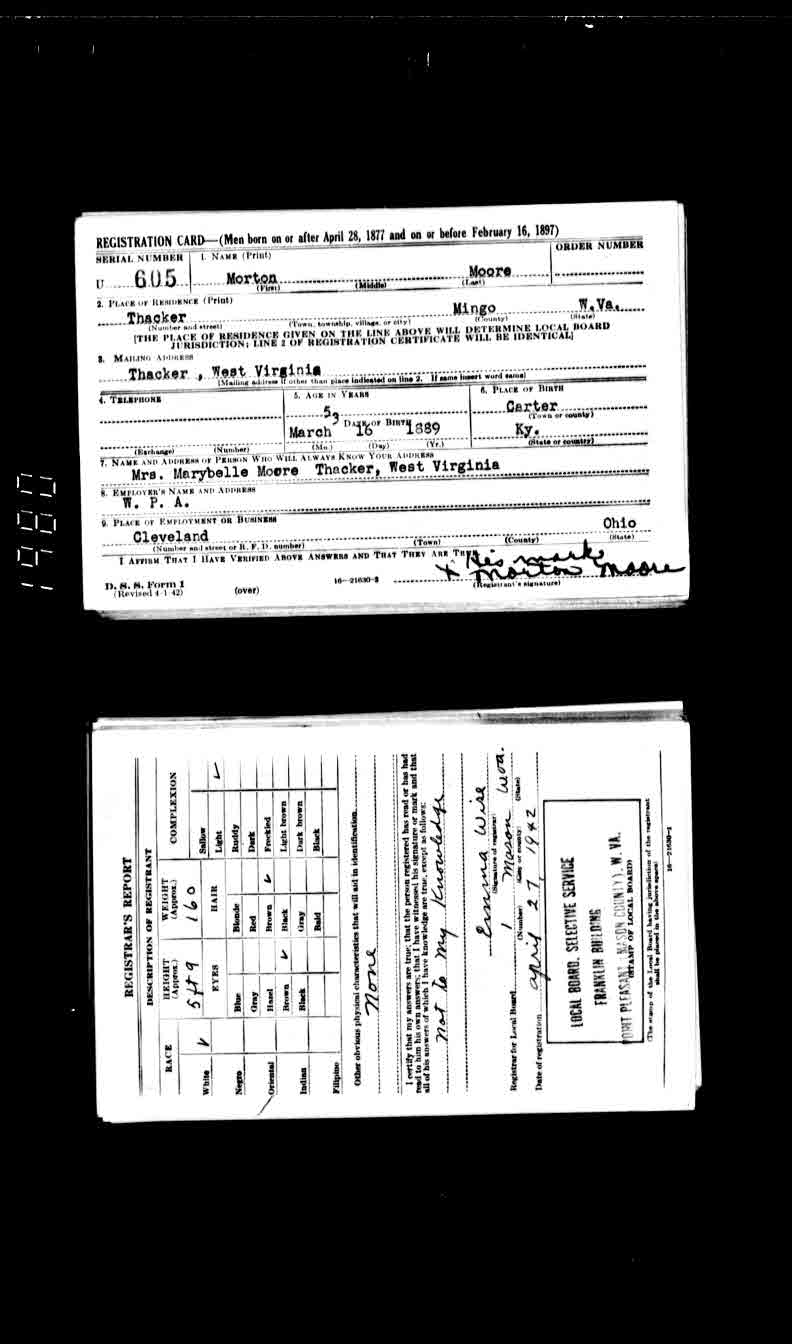 REGISTRATION CARD—(Men born on or after April 28, 1877 and on or before February 16, 1897)
SERIAL NUMBER 1. NAME (Print) ORDER NUMBER
U 605 Morton Moore
(First) (Middle) (Last)
2. PLACE OF RESIDENCE (Print)
Thacker Mingo W.Va.
(Number and street) (Town, township, village, or city) (County) (State)
[THE PLACE OF RESIDENCE GIVEN ON THE LINE ABOVE WILL DETERMINE LOCAL BOARD
JURISDICTION; LINE 2 OF REGISTRATION CERTIFICATE WILL BE IDENTICAL]
3. MAILING ADDRESS
Thacker , West Virginia
(Mailing address if other than place indicated on line 2. If same insert word same)
4. TELEPHONE 5. AGE IN YEARS 6. PLACE OF BIRTH
53 Carter
(Town or county)
DATE OF BIRTH
March 16 1889 Ky.
(Exchange) (Number) (Mo.) (Day) (Yr.) (State or country)
7. NAME AND ADDRESS OF PERSON WHO WILL ALWAYS KNOW YOUR ADDRESS
Mrs. Marybelle Moore Thacker, West Virginia
8. EMPLOYER'S NAME AND ADDRESS
W. P. A.
9. PLACE OF EMPLOYMENT OR BUSINESS
Cleveland Ohio
(Number and street or R. F. D. number) (Town) (County) (State)
I AFFIRM THAT I HAVE VERIFIED ABOVE ANSWERS AND THAT THEY ARE TRUE.
x His mark
Morton Moore
D. S. S. Form 1 16—21630-2 (Registrant's signature)
(Revised 4-1-42) (over)
1980
REGISTRAR'S REPORT
DESCRIPTION OF REGISTRANT
RACE HEIGHT (Approx.) WEIGHT (Approx.) COMPLEXION
5 ft 9 160
EYES HAIR
White ✓ Sallow
Light ✓
Negro Blue Blonde Ruddy
Gray Red Dark
Oriental Hazel Brown ✓ Freckled
Brown ✓ Black Light brown
Indian Black Gray Dark brown
Bald Black
Filipino
Other obvious physical characteristics that will aid in identification
None
I certify that my answers are true; that the person registered has read or has had
read to him his own answers; that I have witnessed his signature or mark and that
all of his answers of which I have knowledge are true, except as follows:
Not to my Knowledge
Emma Wise
(Signature of registrar)
Registrar for Local Board 1 Mason W.Va.
(Number) (City or county) (State)
Date of registration april 27, 1942
LOCAL BOARD, SELECTIVE SERVICE
FRANKLIN BUILDING
POINT PLEASANT, MASON COUNTY), W. VA.
(STAMP OF LOCAL BOARD)
(The stamp of the Local Board having jurisdiction of the registrant
shall be placed in the above space)
16—21630-1